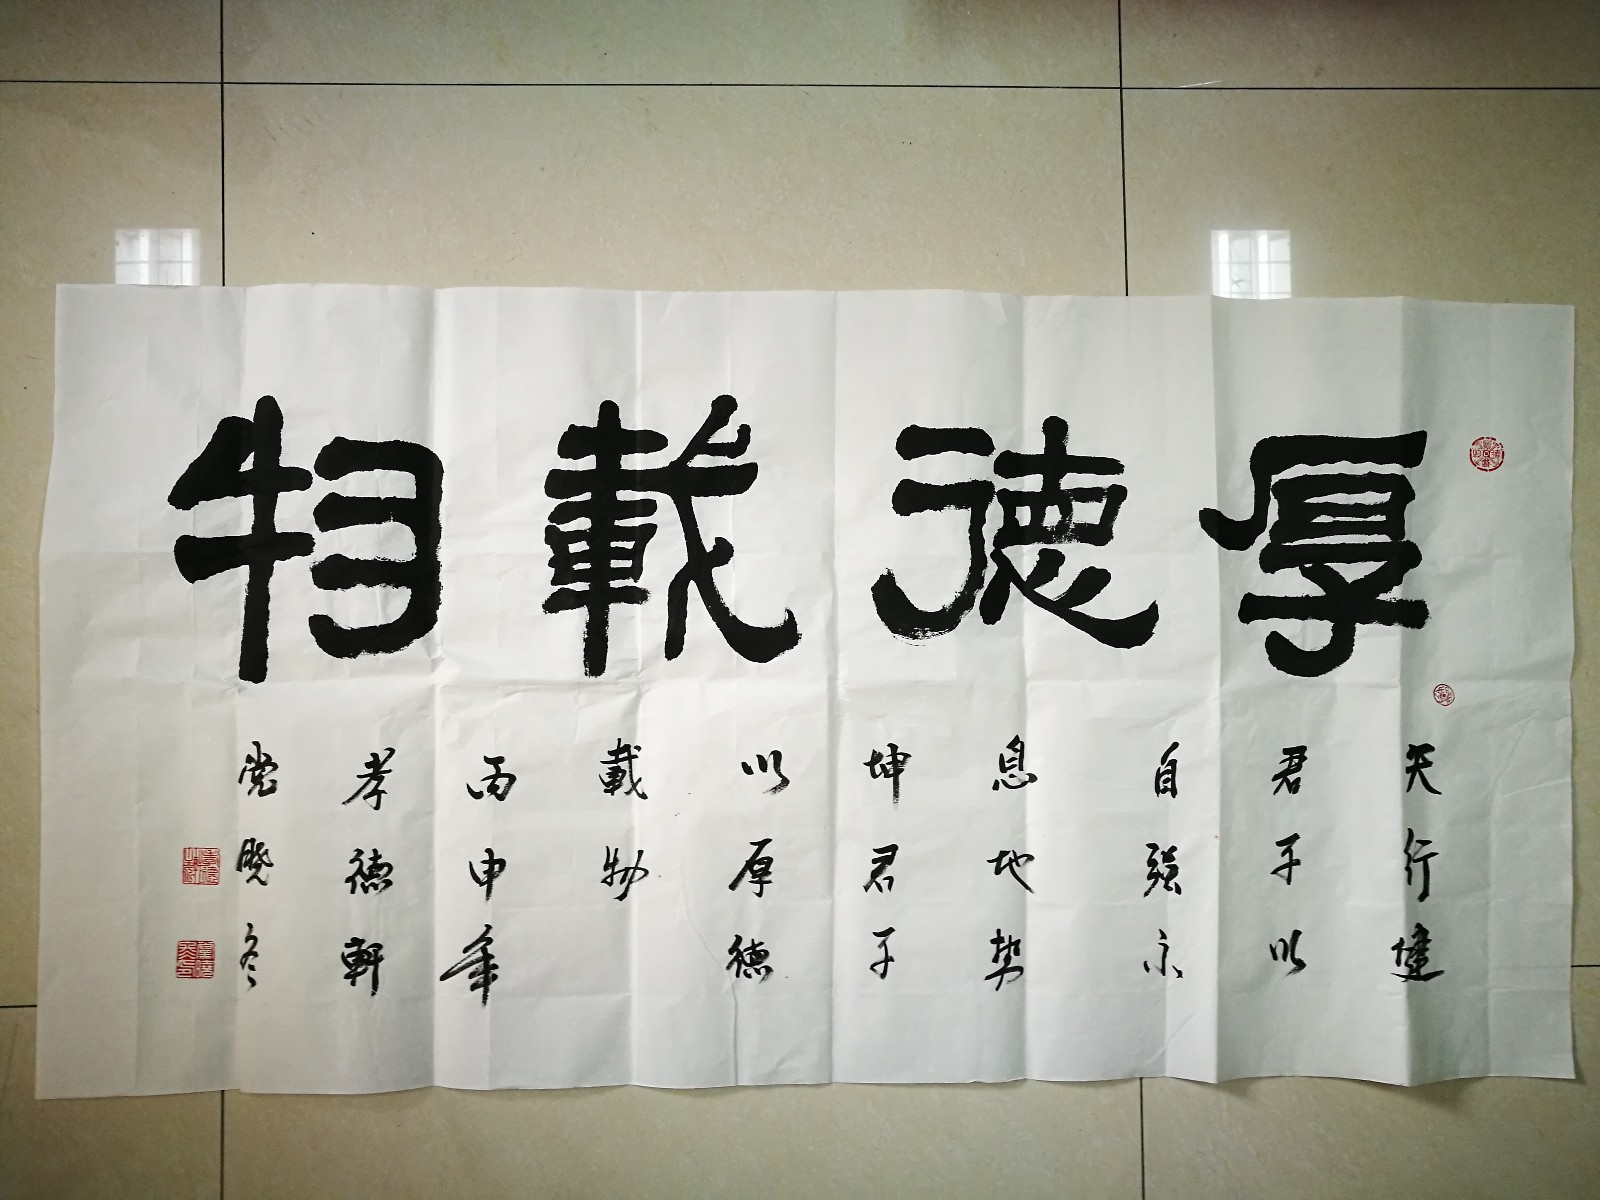 厚德載物
天行健
君子以
自强不
息地势
坤君子
以厚德
載物
丙申年
孝德軒
党晓冬